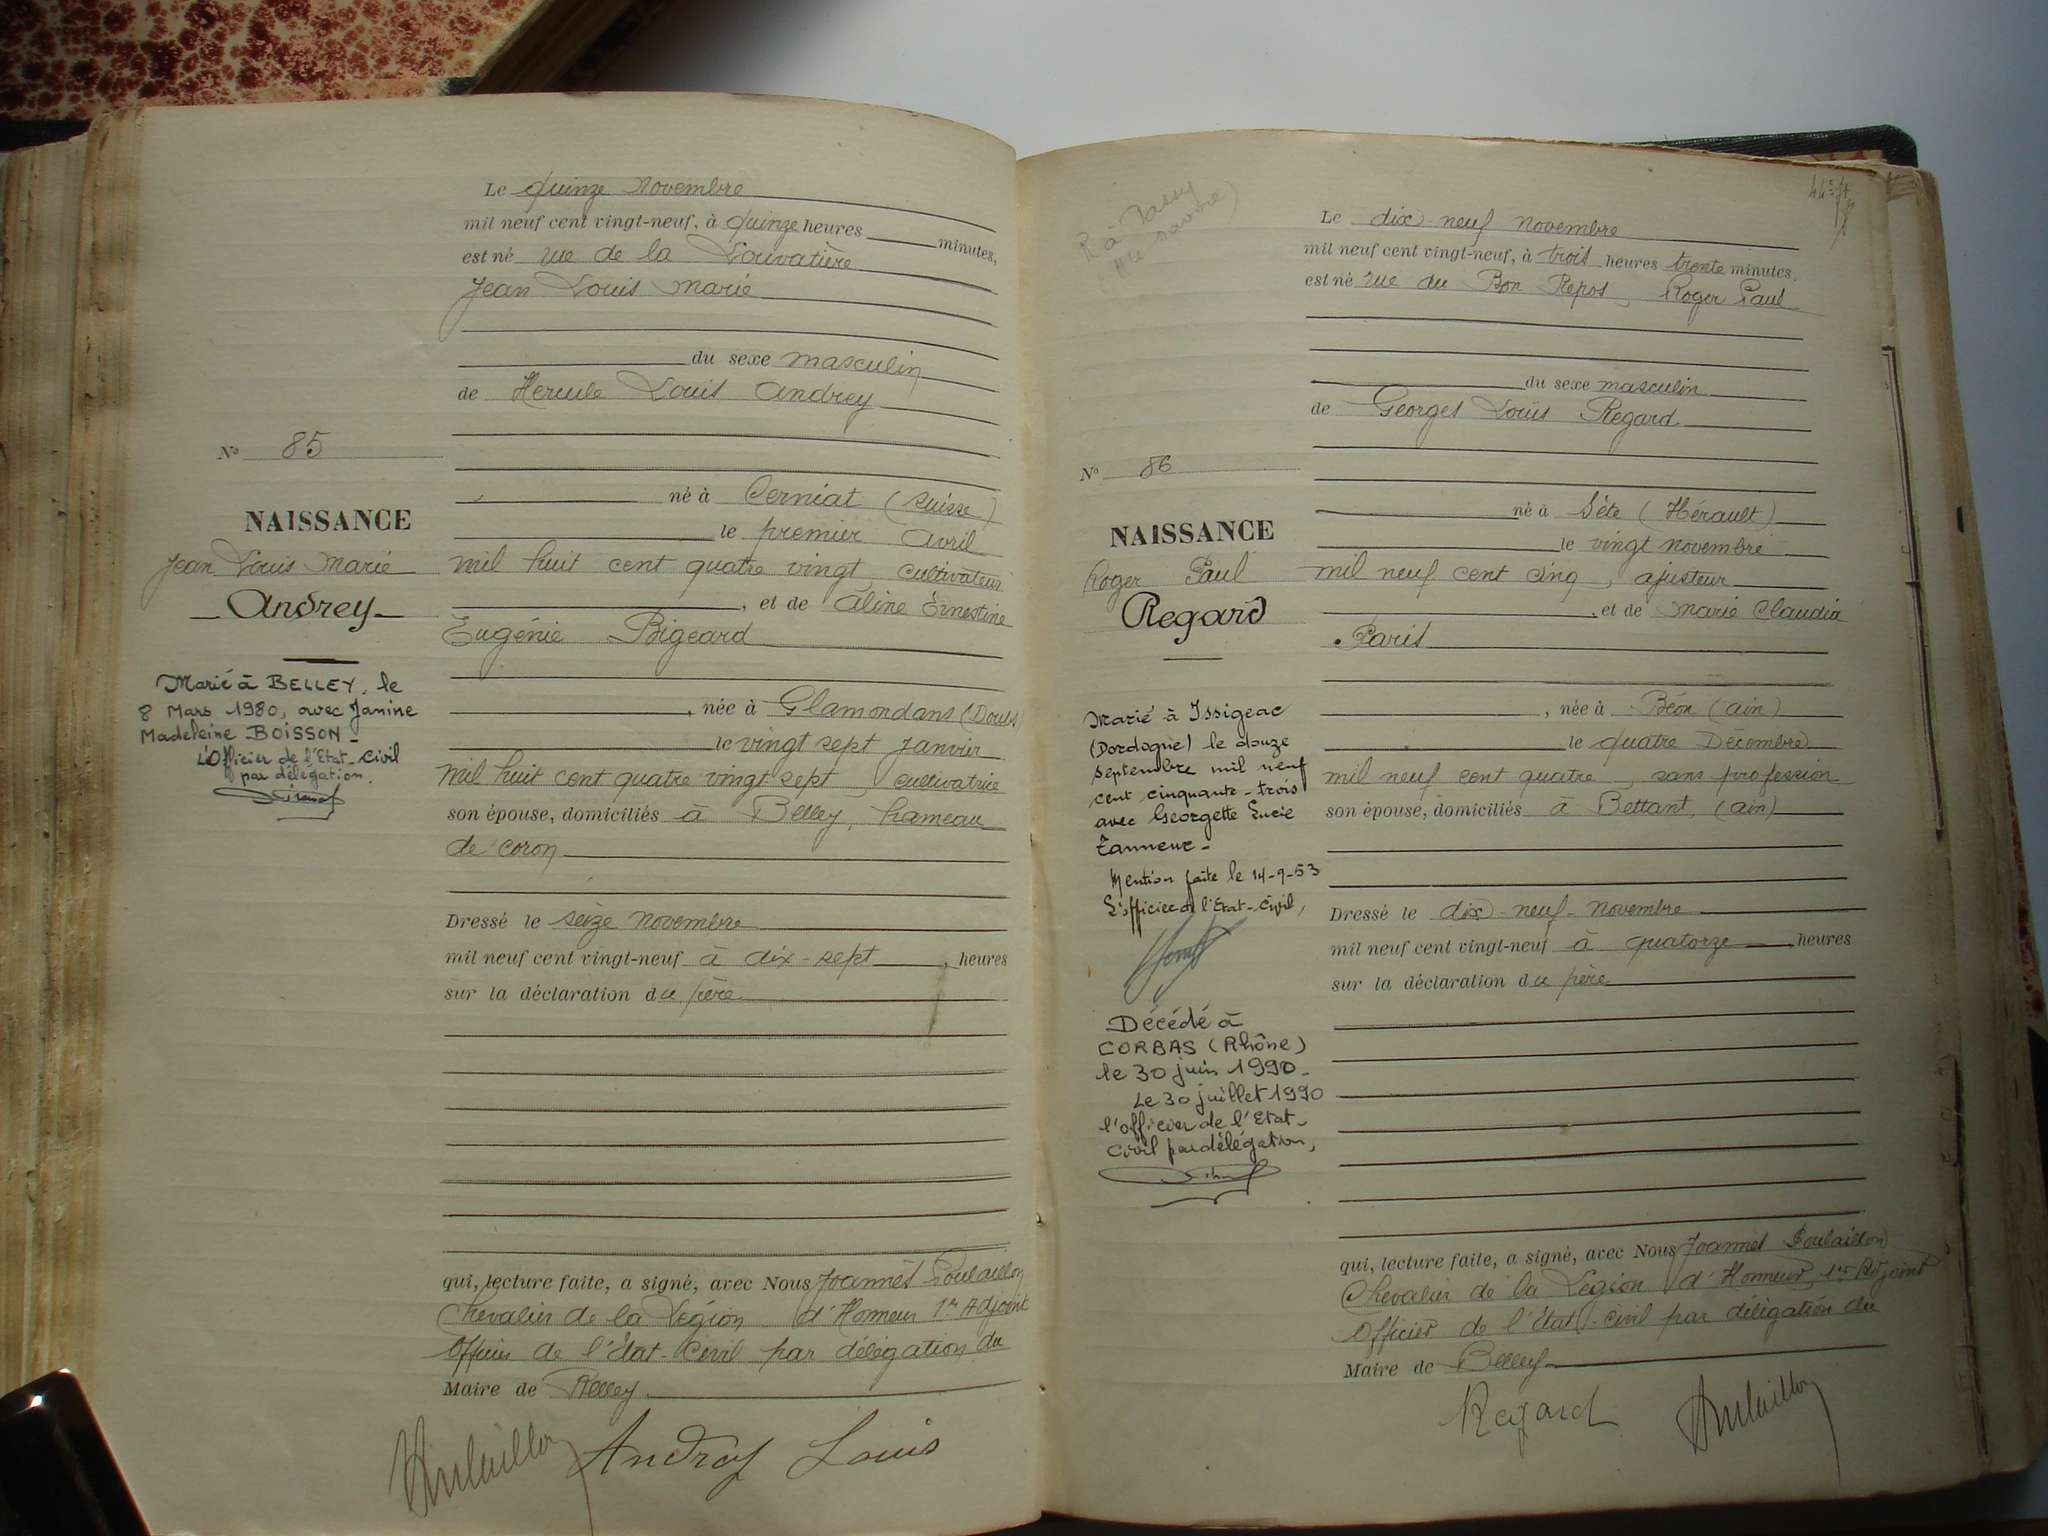 Le quinze Novembre
mil neuf cent vingt-neuf, à quinze heures minutes,
est né rue de la Louvatière
Jean Louis Marie
du sexe masculin
de Hercule Louis Andrey
N° 85
né à Cerniat (Suisse)
NAISSANCE
le premier Avril
Jean Louis Marie
mil huit cent quatre vingt, cultivateur
Andrey
, et de Aline Ernestine
Eugénie Bigeard
Marié à BELLEY, le
8 Mars 1980, avec Janine
Madeleine BOISSON -
L'Officier de l'Etat-Civil
par délégation.
, née à Glamondans (Doubs)
le vingt sept Janvier
mil huit cent quatre vingt sept, cultivatrice
son épouse, domiciliés à Belley, hameau
de Coron
Dressé le seize novembre
mil neuf cent vingt-neuf à dix-sept , heures
sur la déclaration du père
qui, lecture faite, a signé, avec Nous Joannès Poulaillon
Chevalier de la Légion d'Honneur 1er Adjoint
Officier de l'État-Civil par délégation du
Maire de Belley.
Andrey Louis
R à
Le dix-neuf novembre
mil neuf cent vingt-neuf, à trois heures trente minutes.
est né rue du Bon Repos, Roger Paul
du sexe masculin
de Georges Louis Regard
N° 86
né à Sète (Hérault)
NAISSANCE
le vingt novembre
Roger Paul
mil neuf cent cinq, ajusteur
Regard
, et de Marie Claudia
Paris
, née à Béon (Ain)
le quatre Décembre
mil neuf cent quatre, sans profession
son épouse, domiciliés à Bettant, (Ain)
Marié à Issigeac
(Dordogne) le douze
septembre mil neuf
cent cinquante-trois
avec Georgette Lucie
Tanneur -
Mention faite le 14-9-53
L'officier de l'Etat-Civil,
Décédé à
CORBAS (Rhône)
le 30 juin 1990 -
Le 30 juillet 1990
l'officier de l'Etat-
Civil par délégation,
Dressé le dix-neuf-novembre
mil neuf cent vingt-neuf à quatorze heures
sur la déclaration du père
qui, lecture faite, a signé, avec Nous Joannès Poulaillon
Chevalier de la Légion d'Honneur, 1er Adjoint
Officier de l'État-civil par délégation du
Maire de Belley
Regard